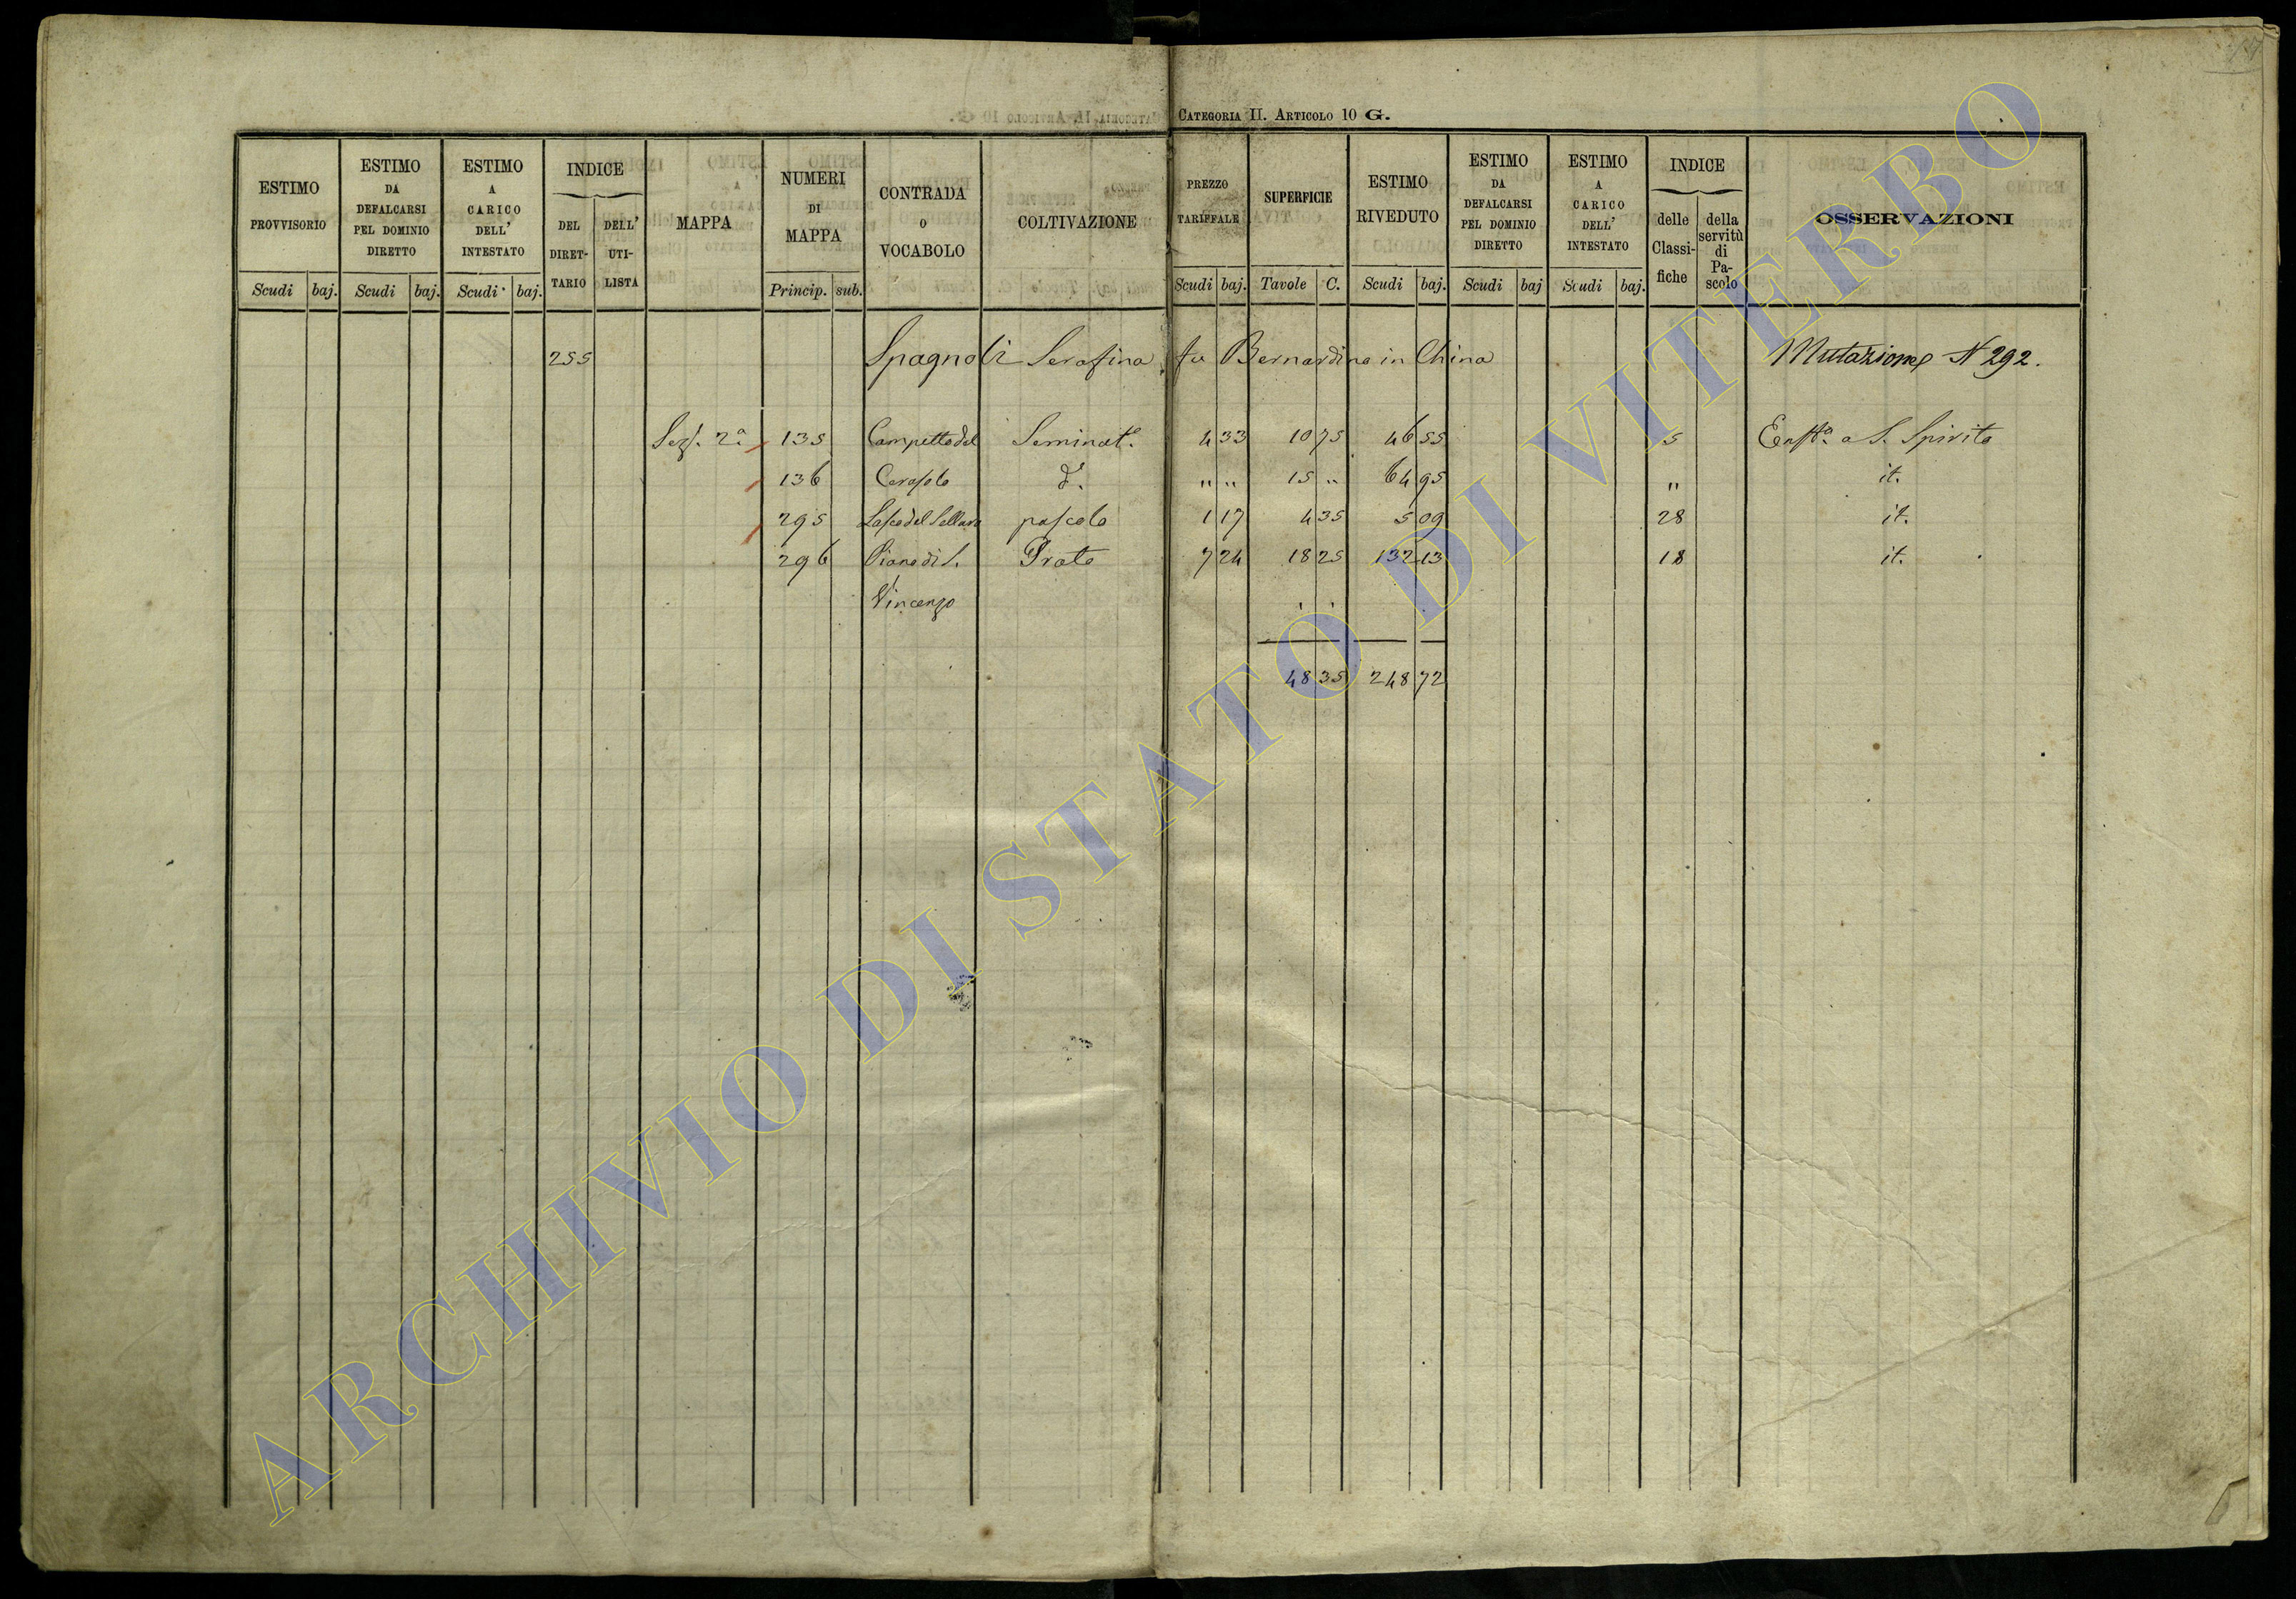 CATEGORIA II. ARTICOLO 10 G.
ESTIMO PROVVISORIO Scudi baj.
ESTIMO DA DEFALCARSI PEL DOMINIO DIRETTO Scudi baj.
ESTIMO A CARICO DELL' INTESTATO Scudi baj.
INDICE DEL DIRET-TARIO DELL' UTI-LISTA
MAPPA
NUMERI DI MAPPA Princip. sub.
CONTRADA O VOCABOLO
COLTIVAZIONE
PREZZO TARIFFALE Scudi baj.
SUPERFICIE Tavole C.
ESTIMO RIVEDUTO Scudi baj.
ESTIMO DA DEFALCARSI PEL DOMINIO DIRETTO Scudi baj
ESTIMO A CARICO DELL' INTESTATO Scudi baj.
INDICE delle Classi-fiche della servitù di Pa-scolo
OSSERVAZIONI
255 Spagnoli Serafina fu Bernardino in China Mutazione N 292.
Sez. 2a 135 Campetto del Seminat. 4 33 10 75 46 55 5 a S. Spirito
136 Cerasolo d. " " 15 " 64 95 " it.
295 pascolo 1 17 4 35 5 09 28 it.
296 Piano di S. Prato 7 24 18 25 132 13 18 it.
Vincenzo
48 35 248 72
ARCHIVIO DI STATO DI VITERBO